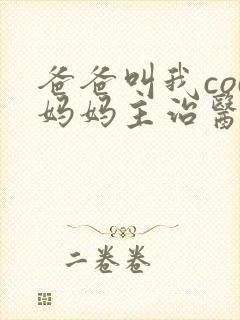 爸爸叫我co
妈妈主治醫
二卷卷